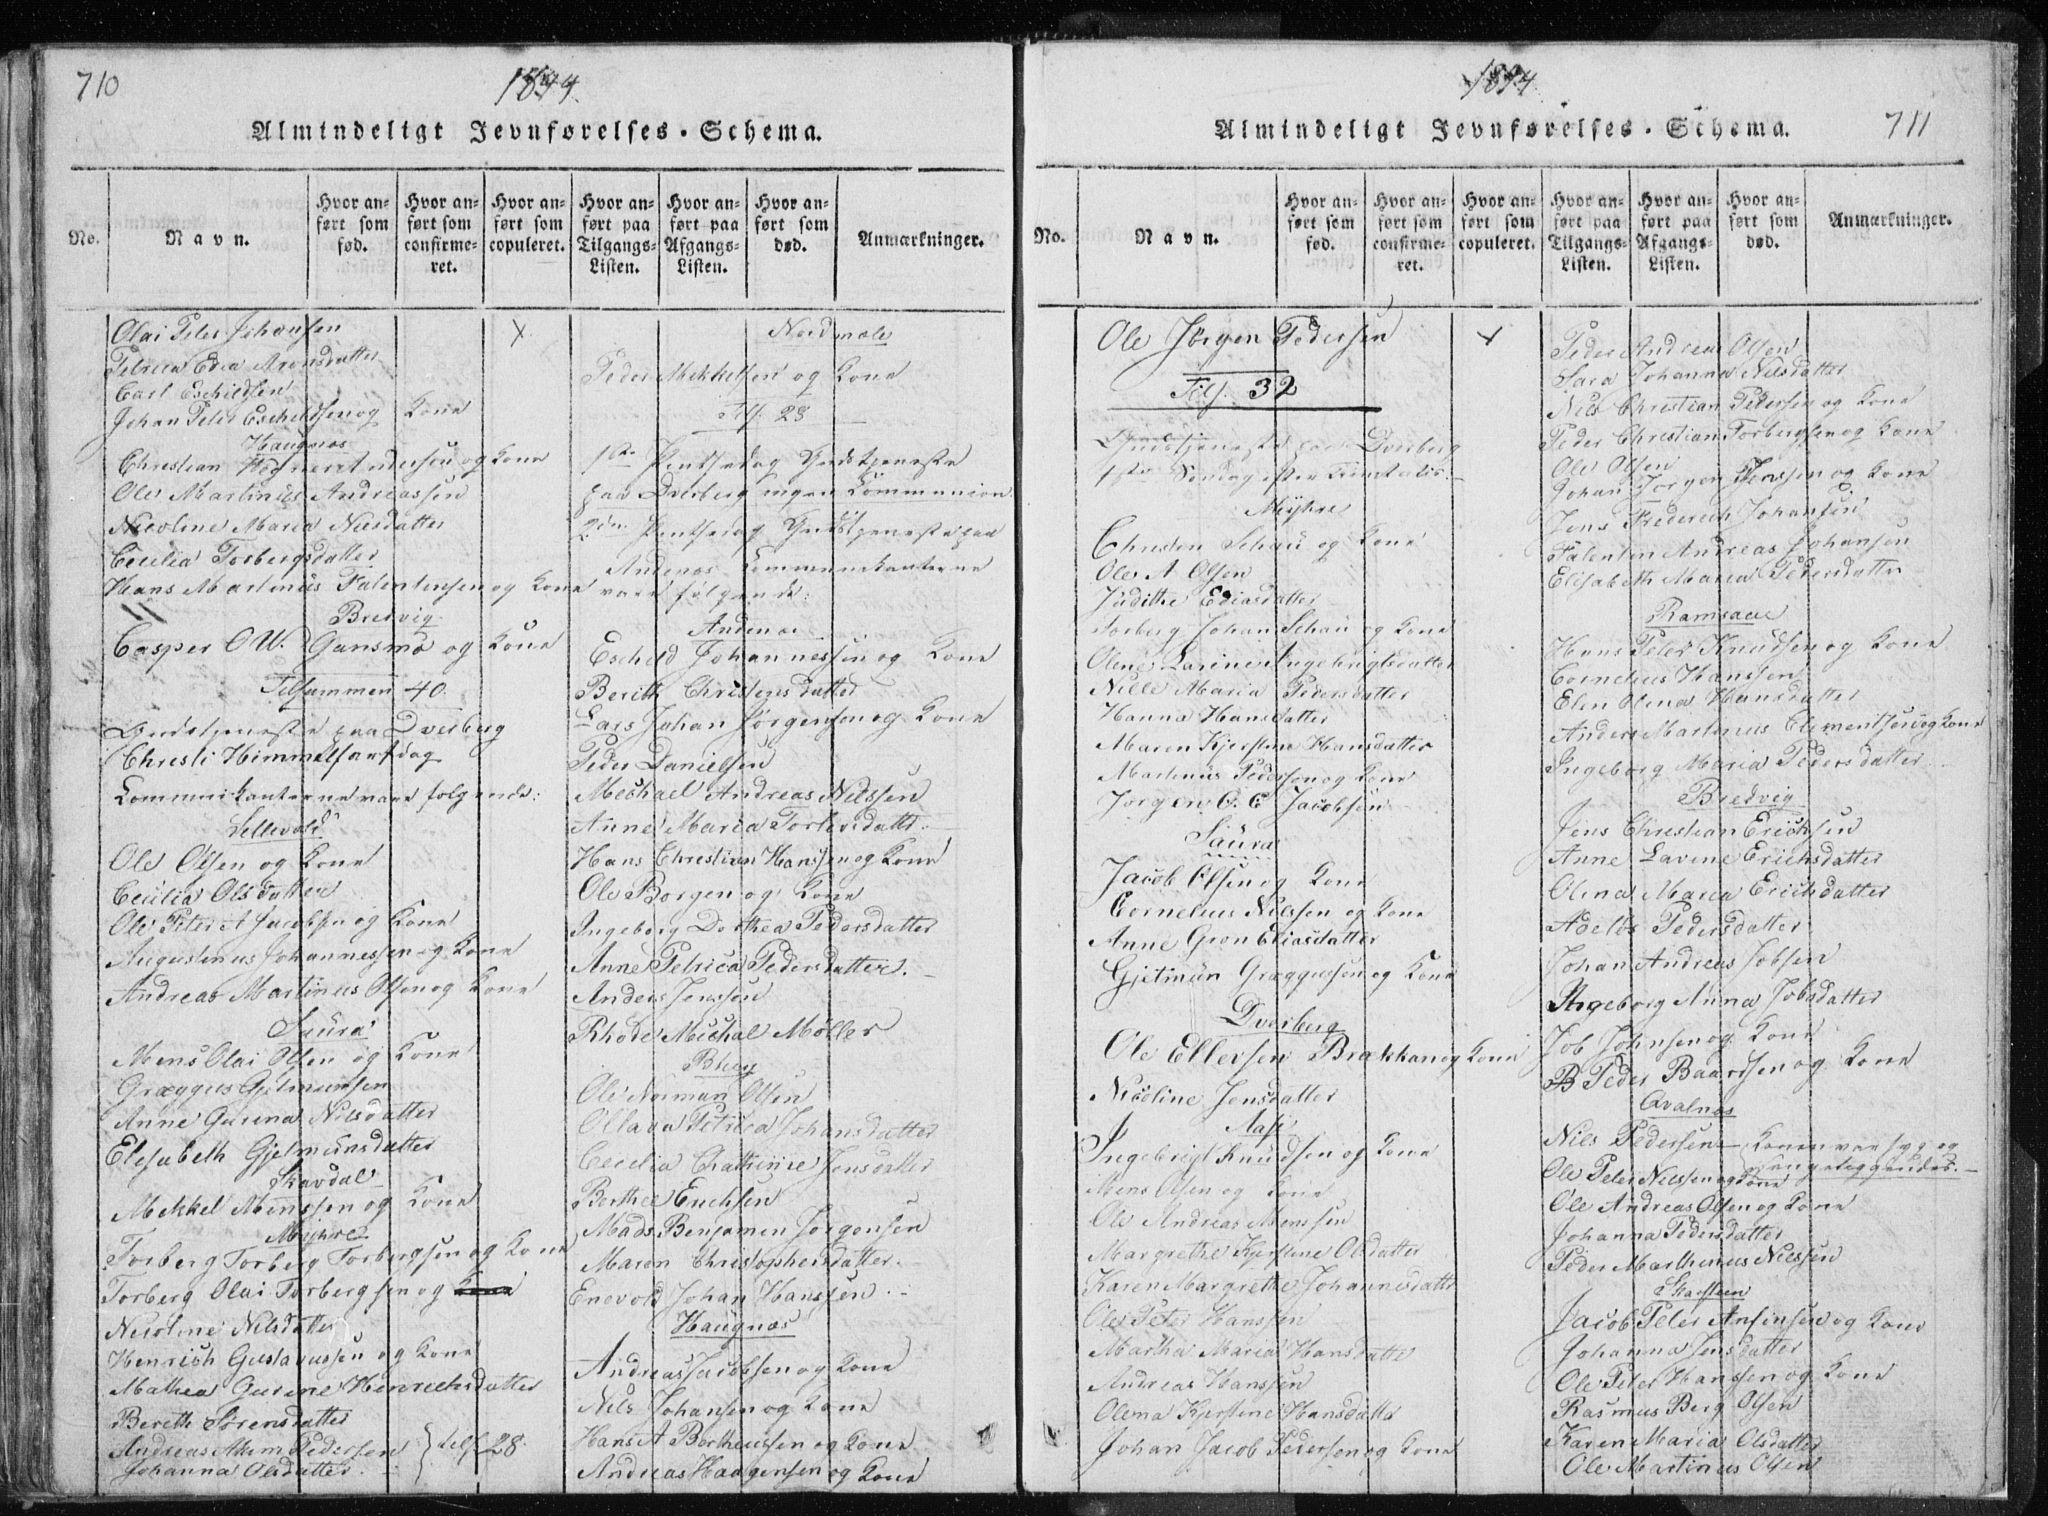 710
1844.
Almindeligt Jevnførelses-Schema.
No.
Navn.
Hvor anført som fød.
Hvor anført som confirmeret.
Hvor anført som copuleret.
Hvor anført paa Tilgangs-Listen.
Hvor anført paa Afgangs-Listen.
Hvor anført som død.
Anmærkninger.
Olai Peter Johansen
Petrica Edea Aronsdatter
Carl Eschildsen
Johan Peter Eschildsen og Kone
Haugnæs
Christian Andersen og Kone
Ole Martinus Andreassen
Nicoline Maria Nilsdatter
Cecilia Torbergsdatter
Hans Martinus Falentinsen og Kone
Bredvig
Casper O W. Gansmo og Kone
Tilsammen 40.
Gudstjeneste paa Dverberg
Christi Himmelfartsdag
Communikanterne vare følgende:
Sellevold
Ole Olsen og Kone
Cecilia Olsdatter
Ole Peter A Jacobsen og Kone
Augustinus Johannessen og Kone
Andreas Martinus Olsen og Kone
Saura
Mens Olai Olsen og Kone
Græggus Gjelmunsen
Anne Gurina Nilsdatter
Elisabeth Gjelmunsdatter
Skavdal
Mekkel Menssen og Kone
Myhre
Torberg Torberg Torbergsen og Kone
Torberg Olai Torbergsen og Kone
Nicoline Nilsdatter
Henrich Gustavussen og Kone
Mathea Gurine Henrichsdatter
Bereth Sørensdatter
Andreas Pedersen
Johanna Olsdatter.
tils. 28.
Nordmæle
Peder Mekkelsen og Kone
Tils. 28
1ste Pintsedag Gudstjeneste
paa Dverberg ingen Communion.
2den Pintsedag Gudstjeneste paa
Andenæs Communikanterne
vare følgende:
Andenæs
Eschild Johannessen og Kone
Berith Christensdatter
Lars Johan Jørgensen og Kone
Peder Danielsen
Michael Andreas Nilssen
Anne Maria Torbersdatter.
Hans Christian Hanssen og Kone
Ole Borgen og Kone
Ingeborg Dorthea Pedersdatter
Anne Petrica Pedersdatter.
Anders Jenssen
Rhode Michal Møller
Bleeg
Ole Norman Olsen
Ollava Petrica Johansdatter
Cecilia Cathrine Jensdatter
Berthel Erichsen
Mads Benjamin Jørgensen
Maren Christophersdatter.
Enevold Johan Hanssen.
Haugnæs
Andreas Jacobsen og Kone
Nils Johansen og Kone
Hans A Bertheussen og Kone
Andreas Haagensen og Kone
1844.
711
Almindeligt Jevnførelses-Schema.
No.
Navn.
Hvor anført som fød.
Hvor anført som confirmeret.
Hvor anført som copuleret.
Hvor anført paa Tilgangs-Listen.
Hvor anført paa Afgangs-Listen.
Hvor anført som død.
Anmærkninger.
Ole Jørgen Pedersen
Tils. 32
Gudstjeneste paa Dverberg
1ste Søndag efter Trinitatis.
Myhre
Christen Schau og Kone
Ole A Olsen
Judithe Eliasdatter
Torberg Johan Schau og Kone
Olene Larine Ingebrigtsdatter
Nille Maria Pedersdatter
Hanna Hansdatter
Maren Kjerstine Hansdatter
Martinus Pedersen og Kone
Jørgen C. C Jacobsen
Saura
Jacob Olsen og Kone
Cornelius Nilssen og Kone
Anne Gron Eliasdatter
Gjetmun Græggussen og Kone
Dverberg
Ole Ellevsen Brækkan og Kone
Nicoline Jensdatter
Aase
Ingebrigt Knudsen og Kone
Mens Olsen og Kone
Ole Andreas Menssen
Margrethe Kjerstine Olsdatter
Karen Margrethe Johannesdatter
Ole Peter Hanssen
Martha Maria Hansdatter
Andreas Hanssen
Olena Kjerstine Hansdatter
Johan Jacob Pedersen og Kone
Peder Andreas Olsen
Sara Johanna Nilsdatter
Nils Christian Pedersen og Kone
Peder Christian Torbergsen og Kone
Ole Olsen
Johan Jørgen Jenssen og Kone
Jens Frederich Johansen
Falentin Andreas Johansen
Elisabeth Maria Pedersdatter
Ramsaae
Hans Peter Knudsen og Kone
Cornelius Hanssen
Elen Olena Hansdatter
Anders Martinus Clementsen og Kone
Ingeborg Maria Pedersdatter
Bredvig
Jens Christian Erichsen
Anne Lavine Erichsdatter
Olina Maria Erichsdatter
Adelus Pedersdatter
Johan Andreas Jobsen
Ingeborg Anna Jobsdatter
Job Johnsen og Kone
Peder Baardsen og Kone
Qvalnæs
Nils Pedersen Konen var syg og sengeliggende.
Ole Peter Nilssen og Kone
Ole Andreas Olsen og Kone
Johanna Pedersdatter
Peder Marthinus Nilssen
Skarsteen
Jacob Peter Ansinsen og Kone
Johanna Jensdatter
Ole Peter Hanssen og Kone
Rasmus Berg Olsen
Karen Maria Olsdatter
Ole Martinus Olsen